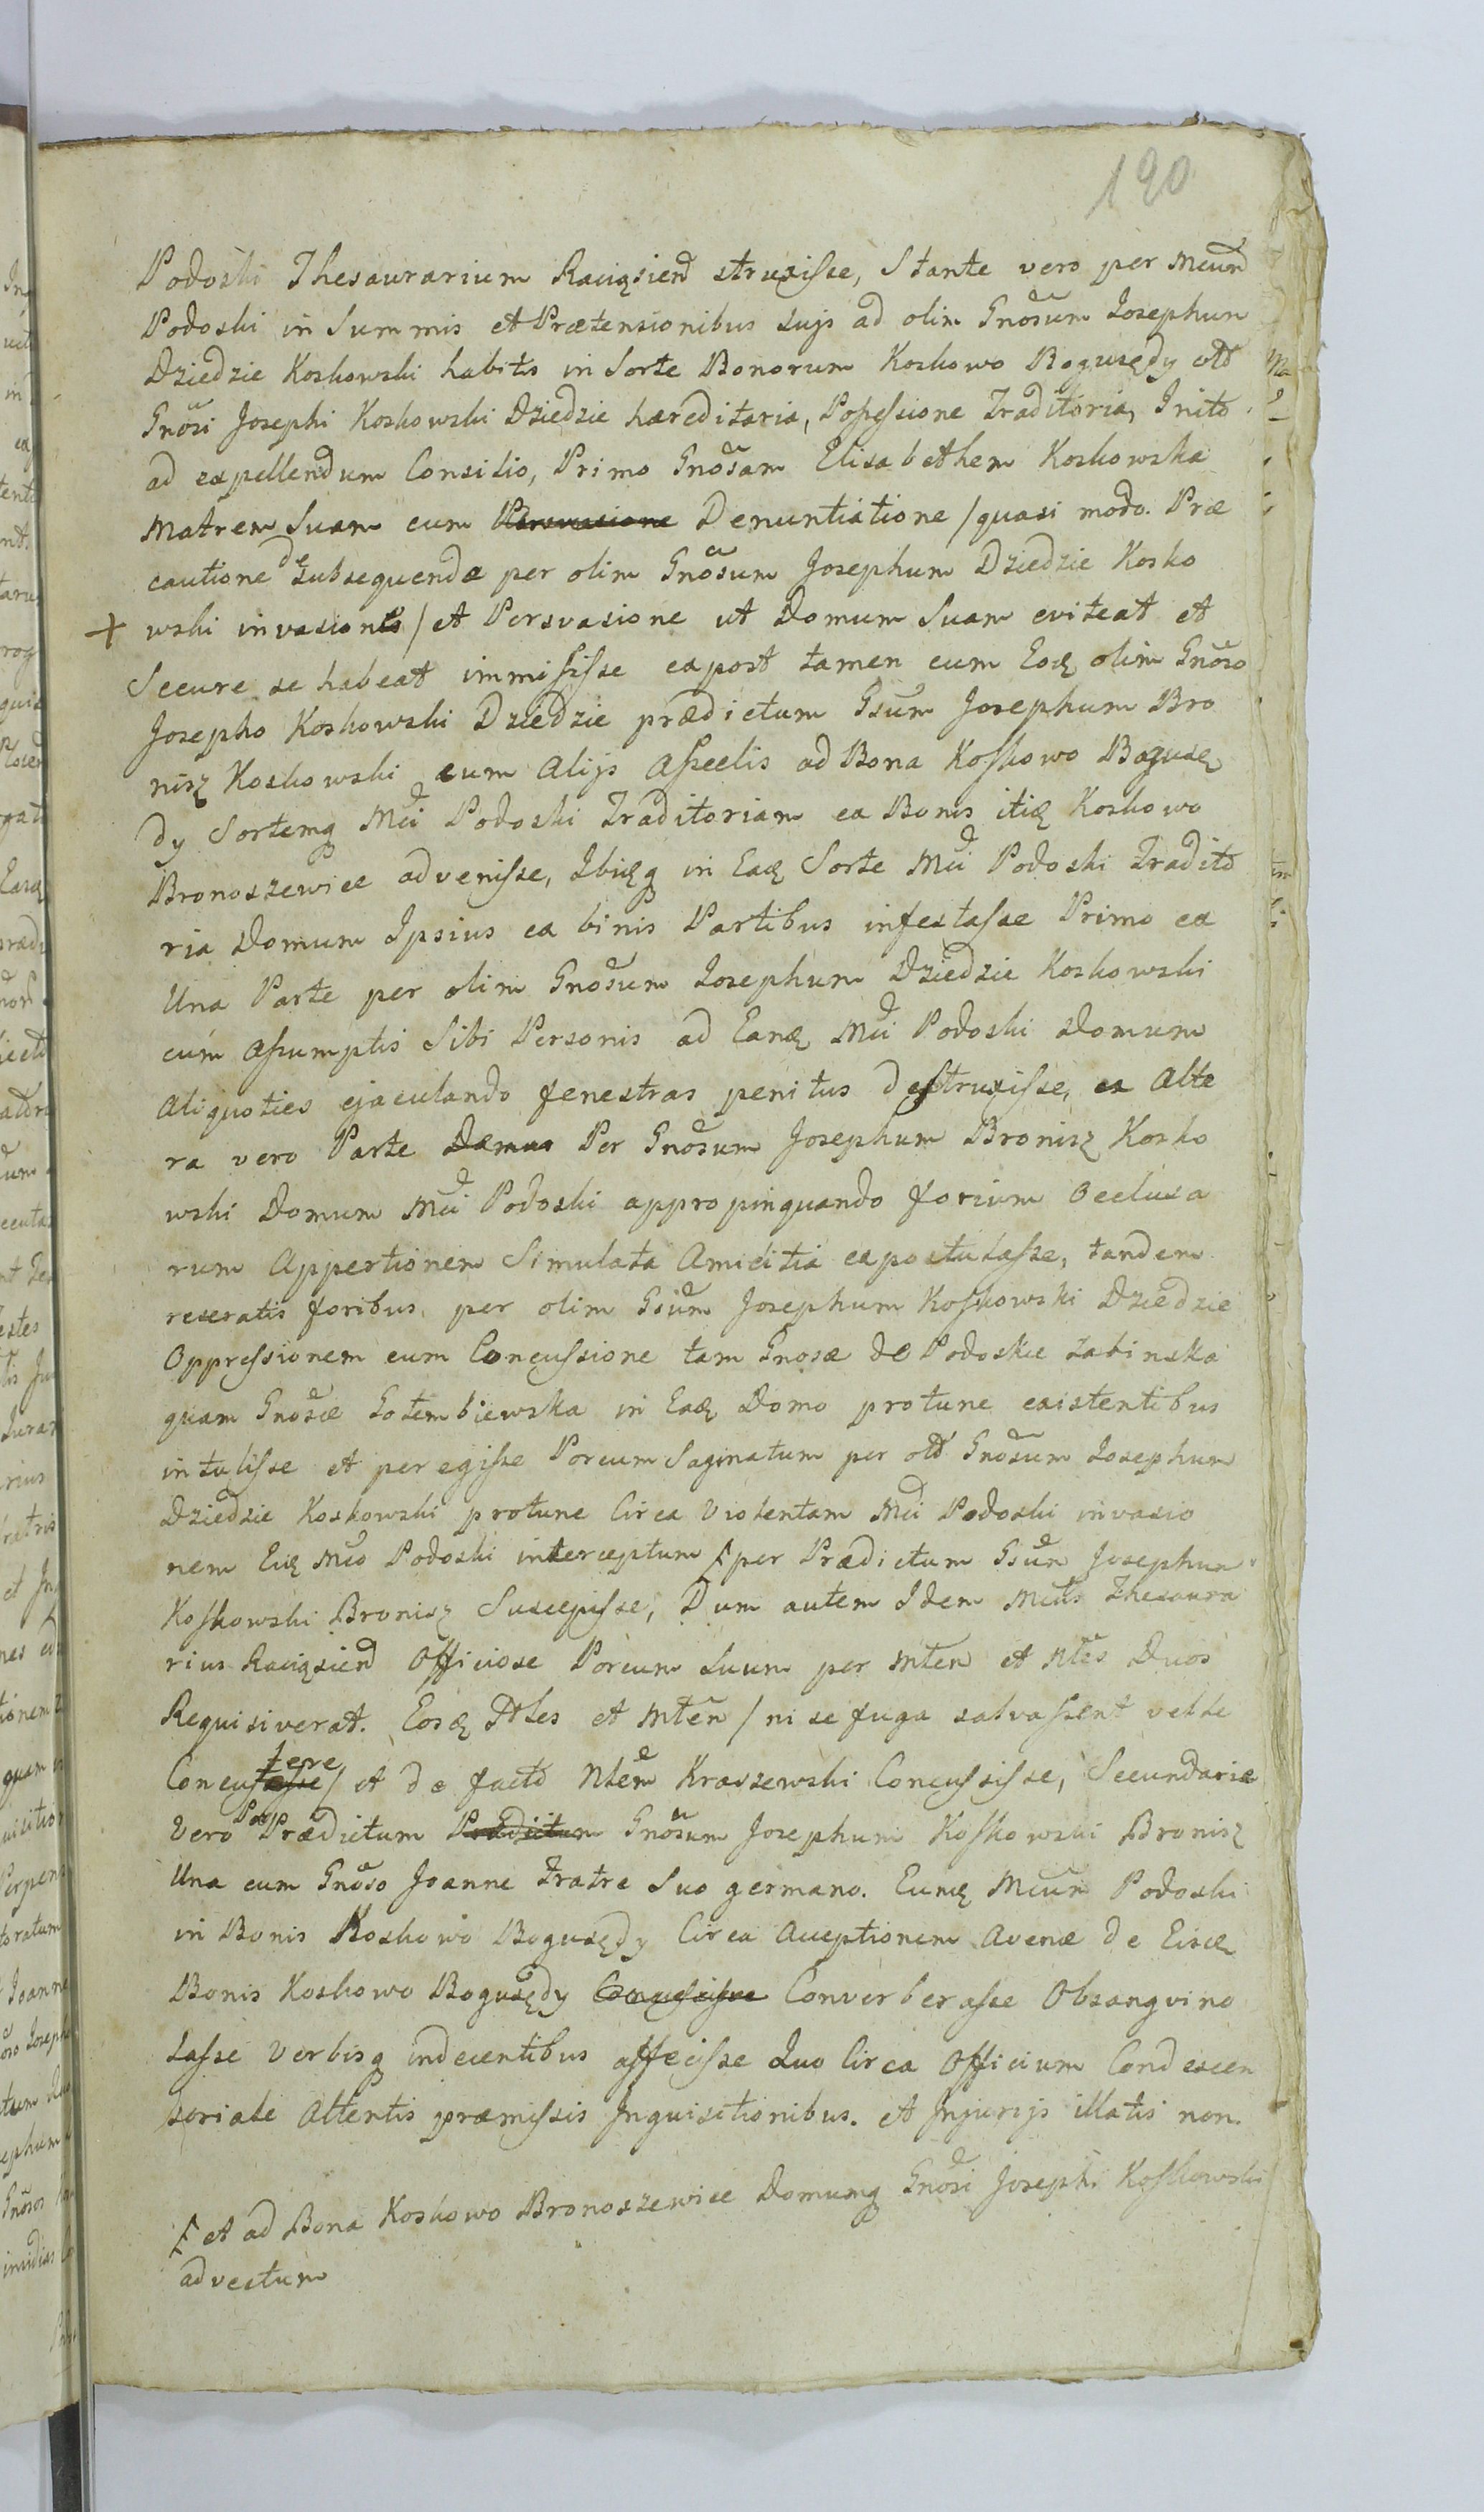 190
Podoski Thesaurarium Raciąsien̄ struxisse, Stante vero per Mcum̄
Podoski in Summis et Prætensionibus sujs ad olim Gnosum Josephum
Dziedzic Koskowski habitis in Sorte Bonorum Koskowo Bogusędy olt
Gnosi Josephi Koskowski Dziedzic hæreditaria, Possessione Traditoria, Inito
ad expellendum Consilio, Primo Gnosam Elisabethem Koskowska
Matrem Suam cum Persvasione Denuntiatione / quasi modo. Præ
cautione de Subsequenda per olim Gnosum Josephum Dziedzic Kosko
+ wski invasionis / et Persvasione ut Domum Suam eviteat et
Secure se habeat immisisse expost tamen cum Eoq olim Gnoso
Josepho Koskowski Dziedzic prædictum Gsum Josephum Bro
nisz Koskowski cum Alijs Asseclis ad Bona Koskowo Bogusę
dy Sortemq Mci Podoski Traditoriam ex Bonis itiq Koskowo
Bronoszewice advenisse, Ibiqq in Eaq Sorte Mci Podoski Tradito
ria Domum Ipsius ex binis Partibus infestasse Primo ex
Una Parte per olim Gnosum Josephum Dziedzic Koskowski
cum assumptis Sibi Personis ad Eanq Mci Podoski Domum
Aliquoties ejaculando fenestras penitus destruxisse, ex Alte
ra vero Parte Domus Per Gnosum Josephum Bronisz Kosko
wski Domum Mci Podoski appropinquando forium Occlusa
rum Appertionem Simulata Amicitia expostulasse, tandem
reseratis foribus, per olim Gsum Josephum Koskowski Dziedzic
Oppressionem cum Concussione tam Gnosæ de Podoskie Łabinska
quam Gnosæ Gołembiewska in Eaq Domo protunc existentibus
intulisse et peregisse Porcum Saginatum per olt Gnosum Josephum
Dziedzic Koskowski protunc Circa Violentam Mci Podoski invasio
nem Eiq Mco Podoski interceptum ƒ per Prædictum Gsum Josephum
Koskowski Bronisz Suscepisse, Dum autem Idem Mcus Thesaura
rius Raciąsien̄ Officiose Porcum Suum per Mtem et Ntes Duos
Requisiverat. Eosq Ntes et Mtem / ni se fuga salvassent velle
Concutasse tere / et de facto Ntem Kraszewski Concussisse, Secundarie
Vero Per Prædictum Prædictum Gnosum Josephum Koskowski Bronisz
Una cum Gnoso Joanne Fratre Suo germano. Eunq Mcum Podoski
in Bonis Koskowo Bogusędy Circa Acceptionem Avenæ de Eisq
Bonis Koskowo Bogusędy Concussisse Converberasse Obsangvino
lasse Verbisq indecentibus affecisse Quo Circa Officium Condescen
soriale Attentis præmissis Inquisitionibus. et Injurijs illatis non.
ƒ et ad Bona Koskowo Bronoszewice Domumq Gnosi Josephi Koskowski
advectum